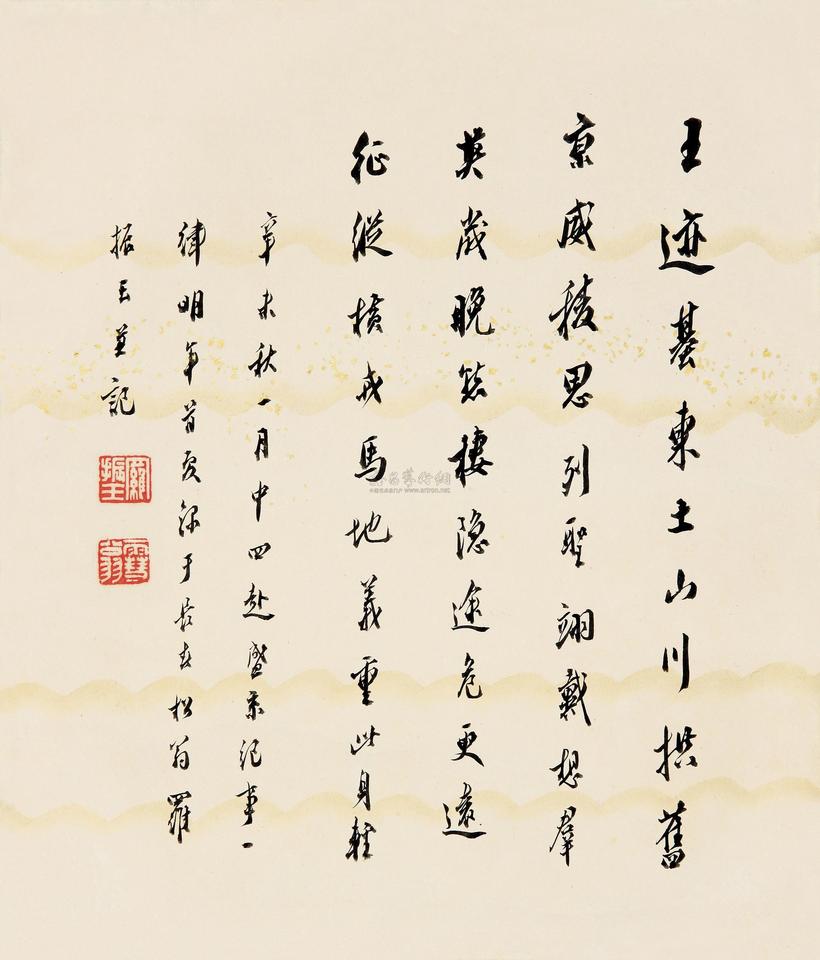 王迹基東土山川拱舊
京威稜思列聖翊戴想羣
英歲晚花棲隱途危更遠
征縱橫戎馬地義重此身輕
辛未秋一月中四赴盛京紀事一
律明年首夏錄于長春松翁羅
振玉並記
羅振玉
雪翁